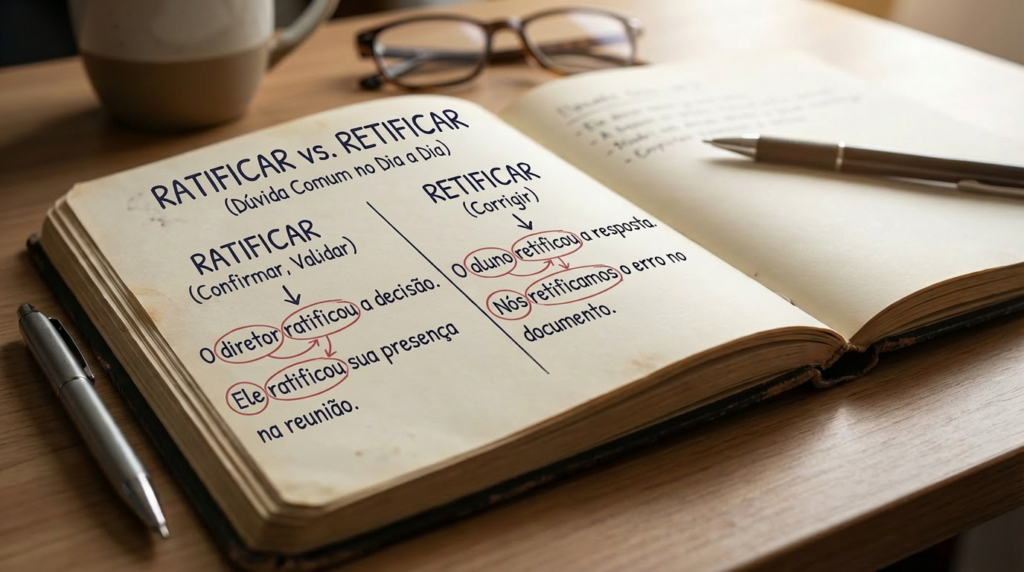 RATIFICAR vs. RETIFICAR
(Dúvida Comum no Dia a Dia)
RATIFICAR
(Confirmar, Validar)
O diretor ratificou a decisão.
Ele ratificou sua presença
na reunião.
RETIFICAR
(Corrigir)
O aluno retificou a resposta.
Nós retificamos o erro no
documento.